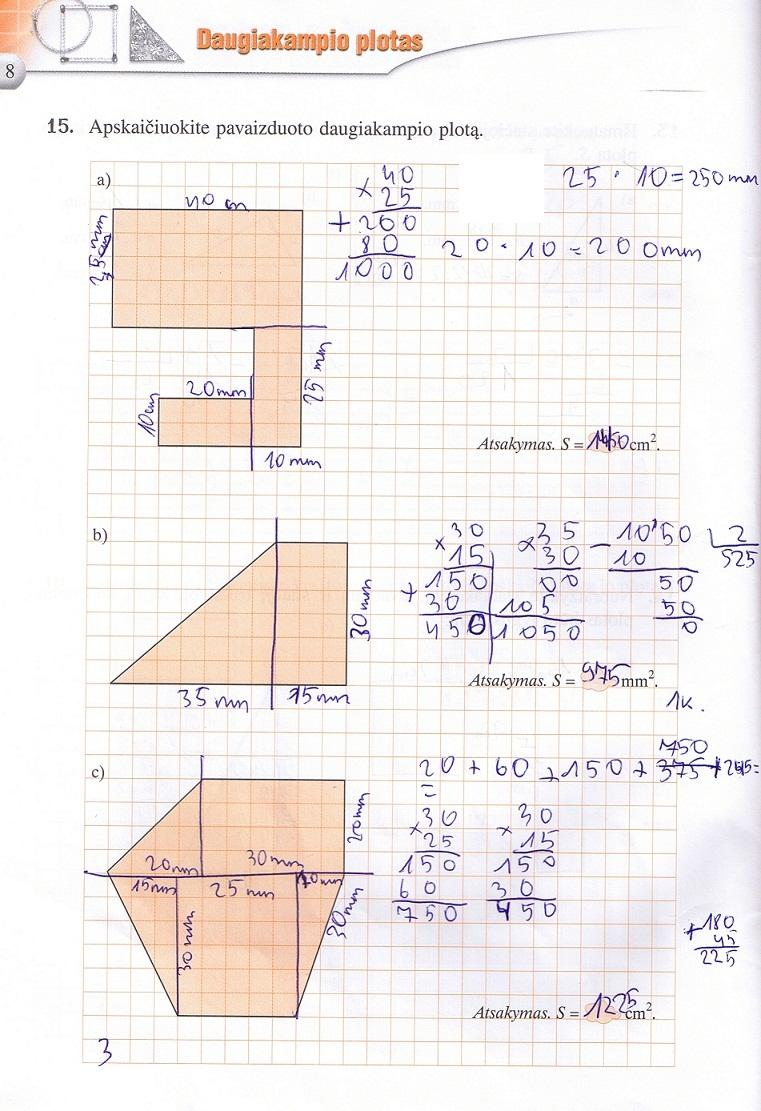 Daugiakampio plotas
8
15. Apskaičiuokite pavaizduoto daugiakampio plotą.
a)
40
× 25
+ 200
80
1000
25 · 10 = 250 mm
20 · 10 = 200 mm
25 mm
20 mm
10 cm
25 mm
10 mm
Atsakymas. S = 1450 cm².
b)
30
× 15
150
+ 30
450
35
× 30
00
105
1050
1050 2
10 525
50
50
0
30 mm
35 mm 15 mm
Atsakymas. S = 975 mm².
1k.
c)
750
20 + 60 + 150 + 375
=
30
× 25
150
60
750
30
× 15
150
30
450
20 mm
20 mm 30 mm
15 mm 25 mm 10 mm
30 mm
30 mm
+ 180
45
225
Atsakymas. S = 1225 cm².
3